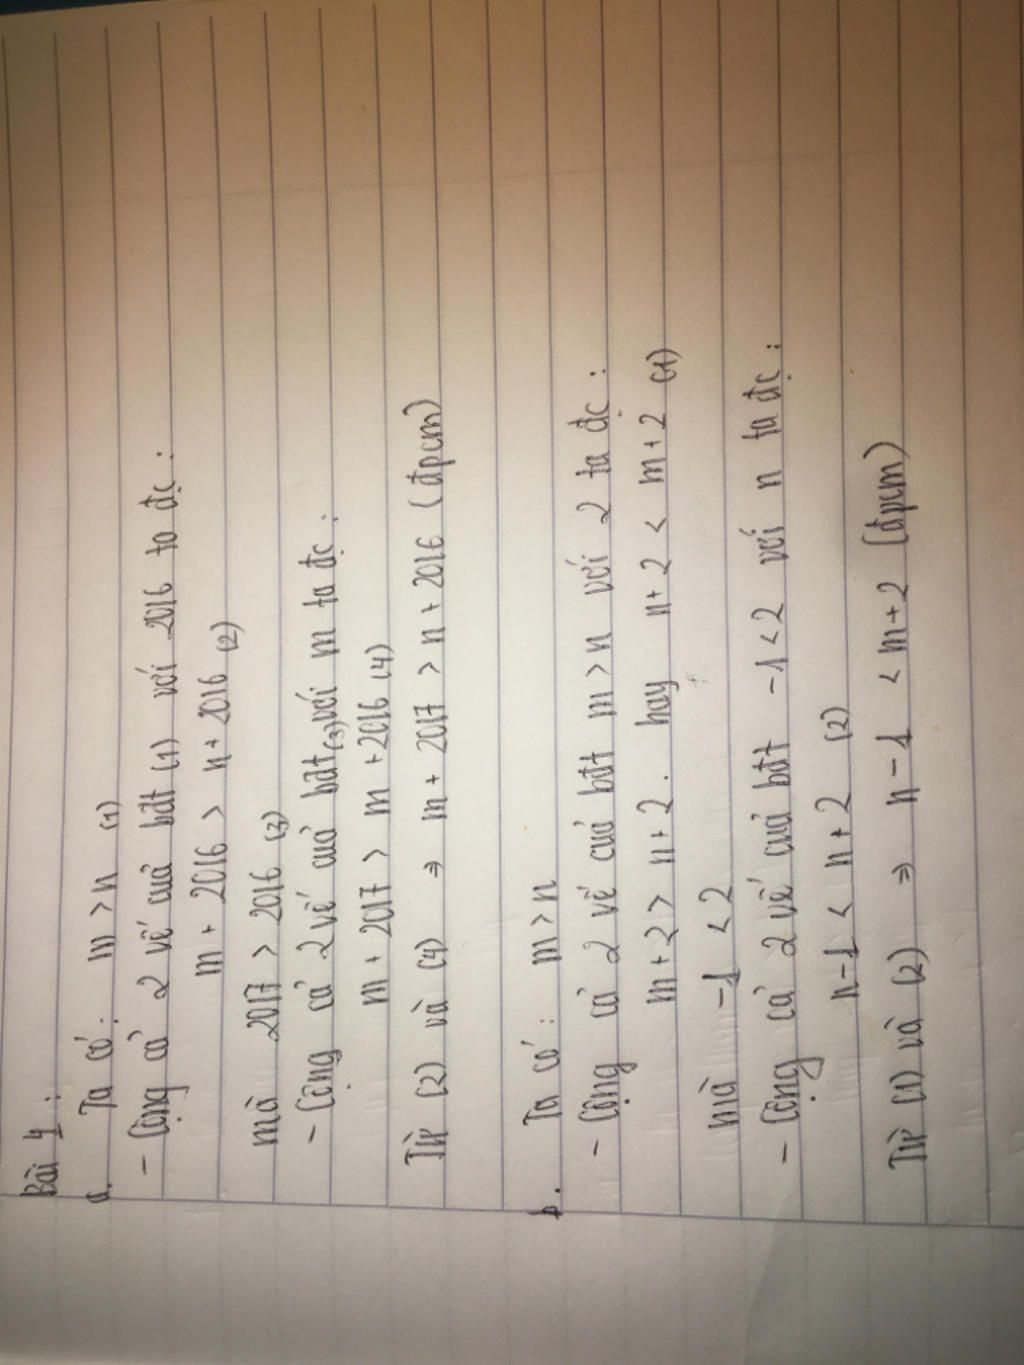 Bài 4:
a. Ta có: m > n (1)
- Cộng cả 2 vế của bđt (1) với 2016 ta đc:
m + 2016 > n + 2016 (2)
mà 2017 > 2016 (3)
- Cộng cả 2 vế của bđt (3) với m ta đc:
m + 2017 > m + 2016 (4)
Từ (2) và (4) => m + 2017 > n + 2016 (đpcm)
b. Ta có: m > n
- Cộng cả 2 vế của bđt m > n với 2 ta đc:
m + 2 > n + 2. hay n + 2 < m + 2 (1)
mà -1 < 2
- Cộng cả 2 vế của bđt -1 < 2 với n ta đc:
n - 1 < n + 2 (2)
Từ (1) và (2) => n - 1 < m + 2 (đpcm)